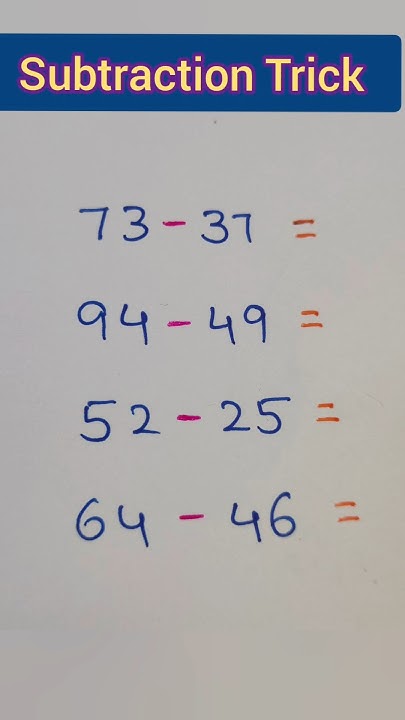 Subtraction Trick
73 - 37 =
94 - 49 =
52 - 25 =
64 - 46 =